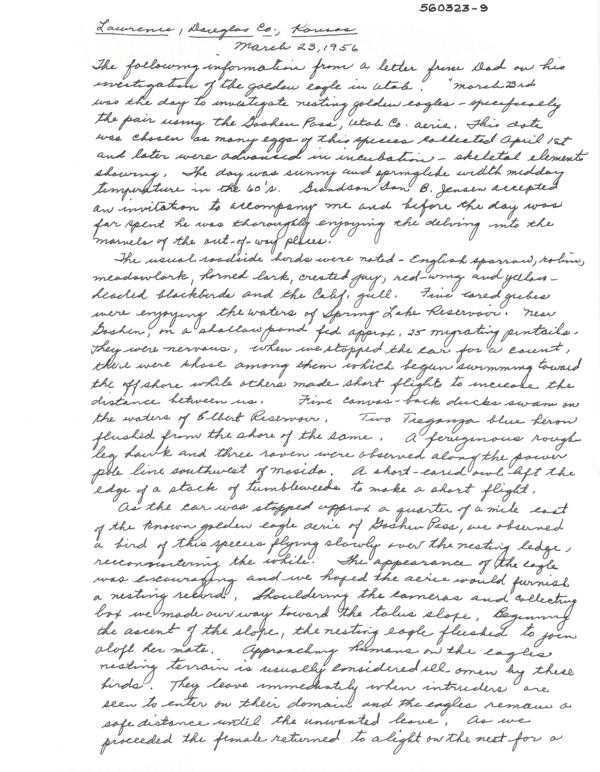 560323-9
Lawrence, Douglas Co., Kansas
March 23, 1956
The following information from a letter from Dad on his
investigation of the golden eagle in Utah. "March 23rd
was the day to investigate nesting golden eagles - specifically
the pair using the Goshen Pass, Utah Co. aerie. This date
was chosen as many eggs of this species collected April 1st
and later were advanced in incubation - skeletal elements
showing. The day was sunny and springlike width midday
temperature in the 60's. Grandson Don B. Jensen accepted
an invitation to accompany me and before the day was
far spent he was thoroughly enjoying the delving into the
marvels of the out-of-way places.
The usual roadside birds were noted - English sparrow, robin,
meadowlark, horned lark, crested jay, red-wing and yellow-
headed blackbirds and the Calif. gull. Five eared grebes
were enjoying the waters of Spring Lake Reservoir. Near
Goshen, on a shallow pond fed approx. 25 migrating pintails.
They were nervous, when we stopped the car for a count,
there were those among them which begun swimming toward
the off shore while others made short flights to increase the
distance between us. Five canvas-back ducks swam on
the waters of Elbert Reservoir. Two Treganza blue heron
flushed from the shore of the same. A fereginous rough
leg hawk and three raven were observed along the power
pole line southwest of Mosida. A short-eared owl left the
edge of a stack of tumbleweeds to make a short flight.
As the car was stopped approx a quarter of a mile east
of the known golden eagle aerie of Goshen Pass, we observed
a bird of this species flying slowly over the nesting ledge,
reconnoitering the while. The appearance of the eagle
was encouraging and we hoped the aerie would furnish
a nesting record. Shouldering the cameras and collecting
box we made our way toward the talus slope. Beginning
the ascent of the slope, the nesting eagle flushed to join
aloft her mate. Approaching humans on the eagles
nesting terrain is usually considered ill omen by these
birds. They leave immediately when intruders are
seen to enter on their domain and the eagles remain a
safe distance until the unwanted leave. As we
proceeded the female returned to alight on the nest for a